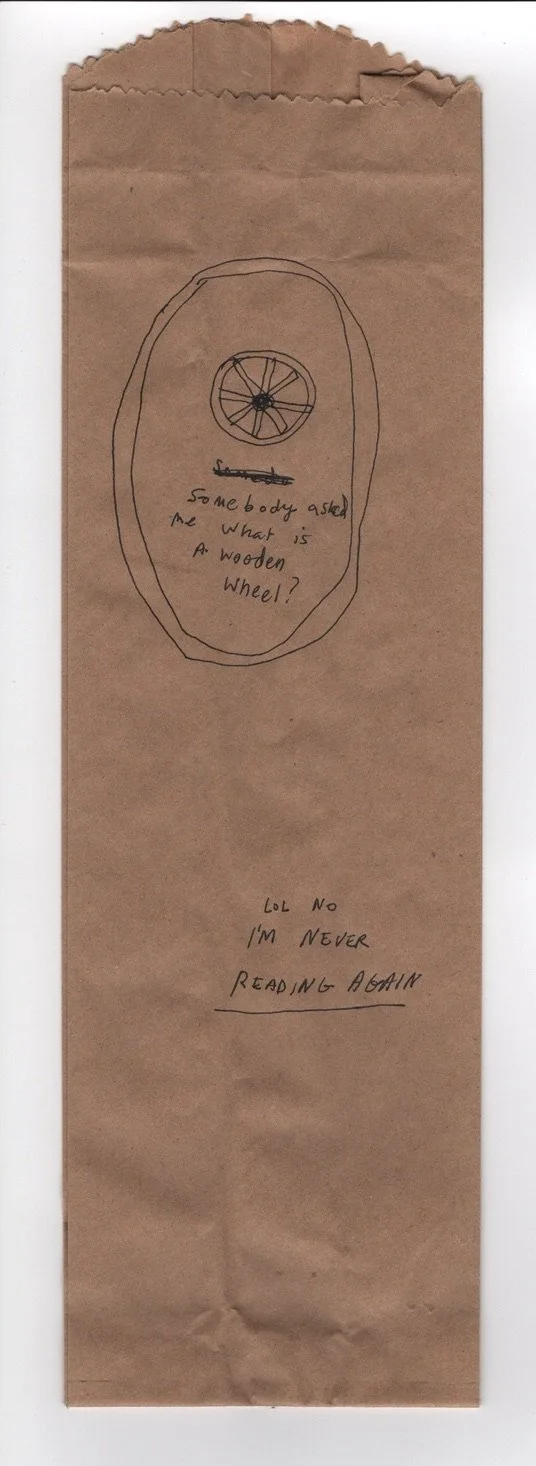 Somebody asked
me what is
A wooden
wheel?
LOL NO
I'M NEVER
READING AGAIN